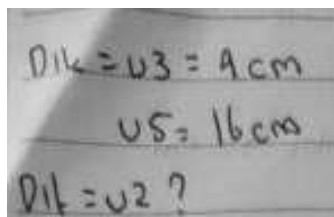 Dik = U3 = 9 cm
U5 = 16 cm
Dit = U2 ?